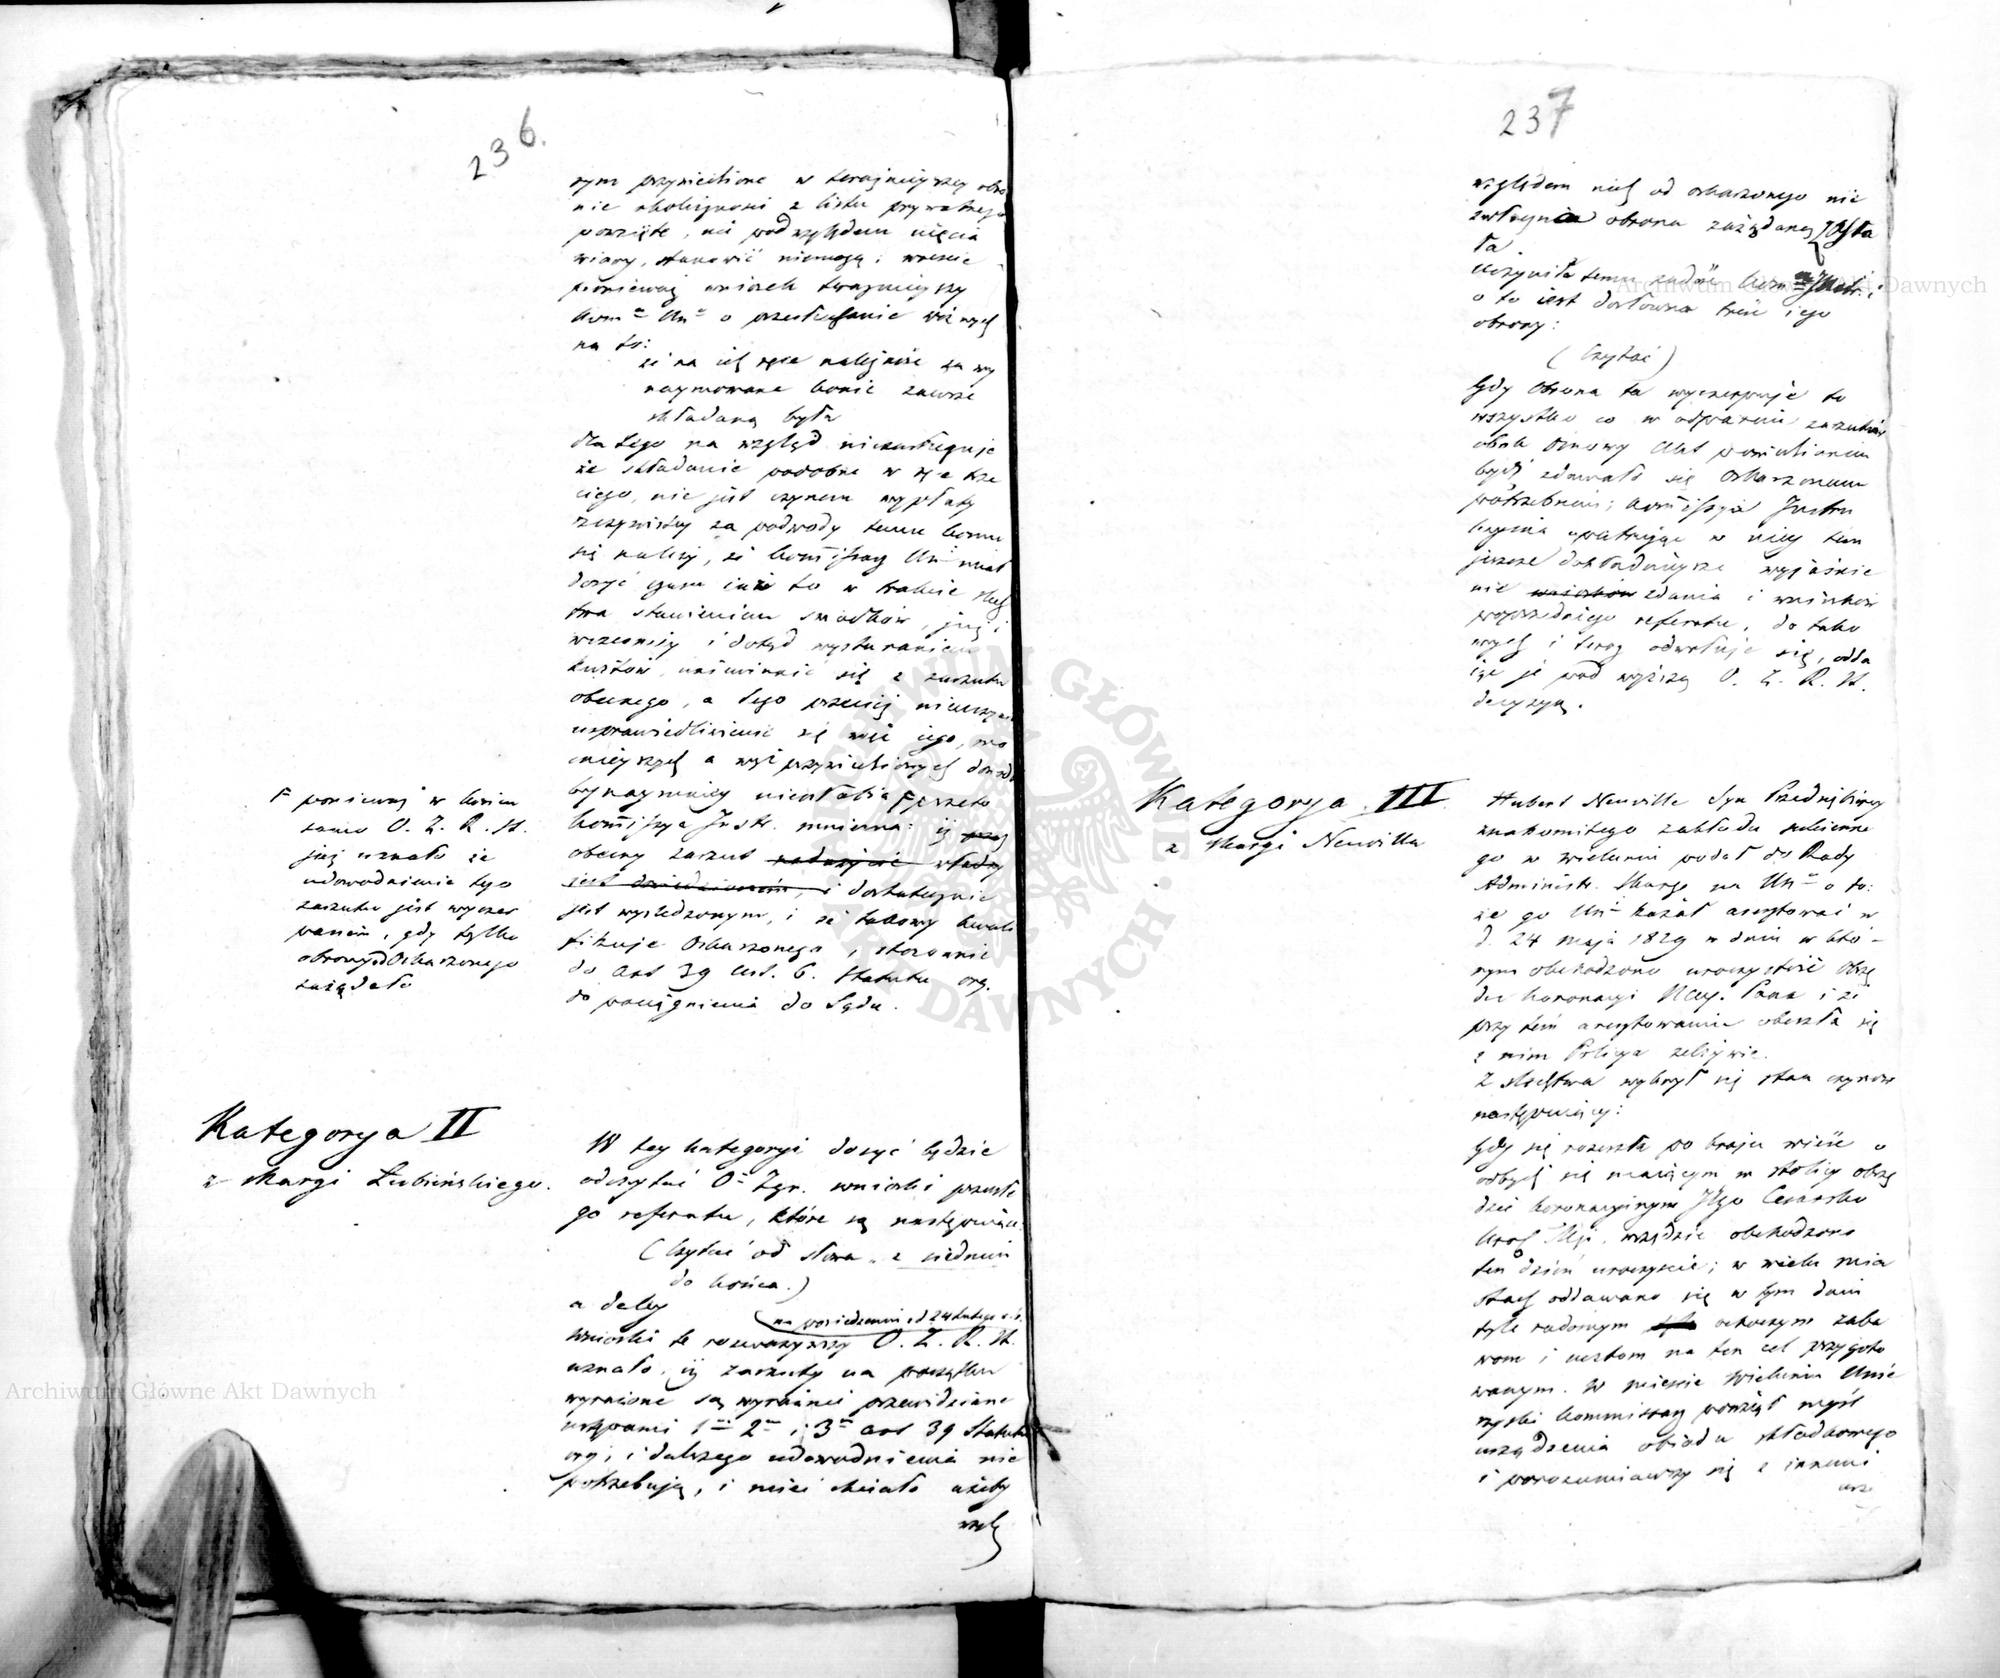 236.
rym przynieśione w teraznieyszey obro
nie okoliczności z listu prywatnego
powzięte, ni pod względem
wiary, stanowić niemogą; wreście
ponieważ wniosek terazniejszy
Komm Un o przesłuchanie
na to:
że na ich ręce należność za wy
naymowane konie zawsze
składaną była
dla tego na wzgląd niezasługuje
że składanie podobne w ręce trze
ciego, nie jest czynem wypłaty
rzeczywistey za podwody temu komu
się należy, że Kommissarz Un miał
dosyć czasu już to w trakcie śledz
twa stawieniem swiadków, już i
wcześniey i dotąd wystaraniem
kwitów, uniewinnić się z zarzutu
obecnego, a tego przecież
usprawiedliwienie się więc jego, mo
cnieyszych a wyż przynieśionych dowodów
bynaymniey nieosłabia F przeto
Kommissya Instr. mniema: iż
obecny zarzut
i dostatecznie
jest wyśledzonym, i że takowy kwali
fikuje Oskarzonego, stosownie
do art 39 ust. 6. Statutu org.
do pociągnienia do Sądu.
F ponieważ w końcu
samo O. Z. R. St.
już uznało że
udowodnienie tego
zarzutu jest wyczer
panem, gdy tylko
obrony od Oskarzonego
zażądało
Kategorya II
z skargi Łubińskiego.
W tey kategoryi dosyć będzie
odczytać O Zgr. wnioski przeszłe
go referatu, które są następujące:
(Czytać od słowa „z siedmiu
do końca.)
a daley
na posiedzeniu d 24 lutego r. b.
Wnioski te rozważywszy O. Z. R. St.
uznało, iż zarzuty na początku
wyrażone są wyraźnie przewidziane
ustępami 1 2 i 3 art 39 Statutu
org; i dalszego udowodnienia nie
potrzebują, i mieć chciało ażeby
wzglę
237
względem nich od oskarzonego nie
zwłocznie obrona zażądaną zosta
ła.
Uczyniła temu zadość Komm Instr. i
o to jest dosłowna treść jego
obrony:
(Czytać)
Gdy obrona ta wyczerpuje to
wszystko co w odparciu zarzutów
obok osnowy Akt powiedzianem
bydź zdawało się Oskarzonemu
potrzebnem; Kommissya Instru
kcyina upatrując w niey tem
jeszcze dokładnieysze wyjaśnie
nie wniosków zdania i wniosków
poprzedniego referatu, do tako
wych i teraz odwołuje się, odda
jąc je pod wyższą O. Z. R. St.
decyzyą.
Kategorya III.
z skargi Neuvilla
Hubert Neuville Syn Przedsiębiorcy
znakomitego zakładu sukienne
go w Wieluniu podał do Rady
Administr. skargę na Un o to:
że go Un kazał aresztować w
d. 24 maja 1829 w dniu w któ-
rym obchodzono uroczystość obrzę
du koronacyi Nay. Pana i że
przytem aresztowaniu obeszła się
z nim Policya zelżywie.
Z śledztwa wykrył się stan czynów
następujący:
Gdy się rozeszła po kraju wieść o
odbydź się maiącym w stolicy obrzę
dzie koronacyinym Jego Cesarsko
Król Mci, wszędzie obchodzono
ten dzień uroczyście; w wielu mia
stach oddawano się w tym dniu
tyle radosnym ochoczym zaba
wom i ucztom na ten cel przygoto
wanym. W mieście Wieluniu Unie
rzyski Kommissarz powziął myśl
urządzenia obiadu składkowego
i porozumiawszy się z innemi
urzę